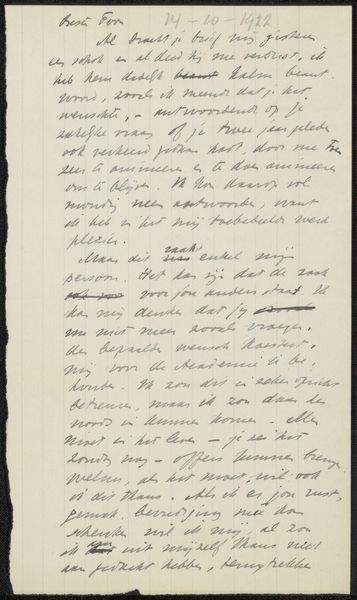 Beste Toon 14-10-1922
Al bracht je brief mij gisteren
een schok en al deed hij me verdriet, ik
heb hem dadelijk kalm beant-
woord, zooals ik meende dat je het
wenschte, – antwoordende op je
zakelijke vraag of je twee jaar geleden
ook verkeerd gedaan hadt, door me toen
zeer te animeeren en te doen animeeren
om te blijven. Ik kon daarop vol-
mondig neen antwoorden, want
ik heb in het mij toebedeelde werk
plezier.
Maar dit raakt enkel mijn
persoon. Het kan zijn dat de zaak
voor jou anders staat. Ik
kan mij denken dat jij
me niet meer zooals vroeger,
den bepaalden wensch koestert,
mij voor de Academie te be-
houden. Ik zou dit in zeker opzicht
betreuren, maar ik zou daar des-
noods in kunnen komen. Men
moet in het leven – je zei het
zondag nog – offers kunnen brengen
welnu, als het moet, wil ook
ik dit thans. Als ik er jou rust,
gemak, bevrediging mee kan
schenken wil ik mij, al zou
ik uit mijzelf thans niet
aan gedacht hebben, terugtrekken